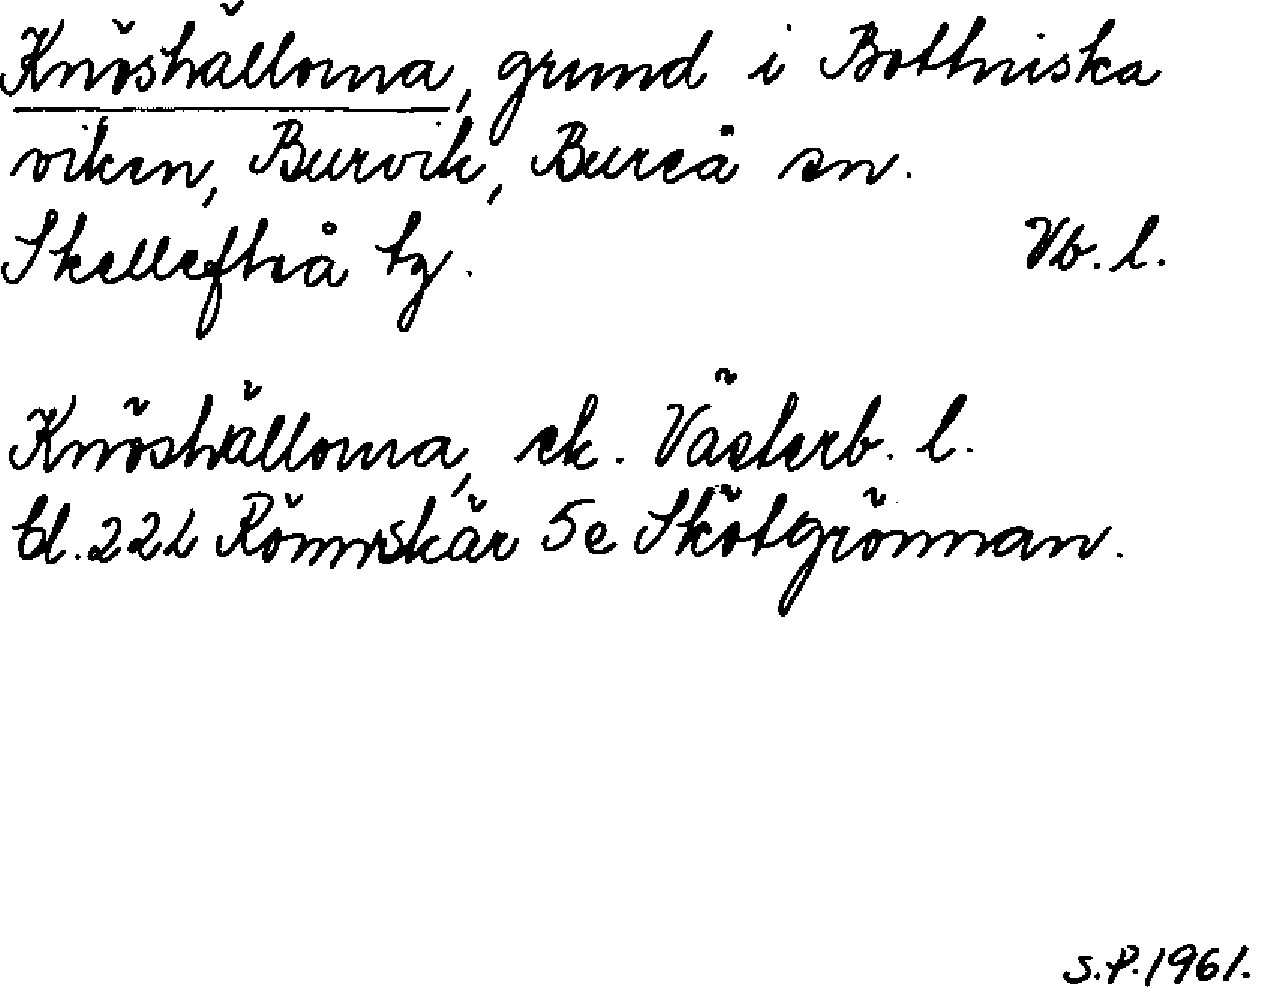 Knöshällorna, grund i Bottniska
viken, Burvik, Bureå sn.
Skellefteå tg. Vb. l.
Knöshällorna, ek. Västerb. l.
bl. 22L Rönnskär 5e Skötgrönnan.
S.P. 1961.